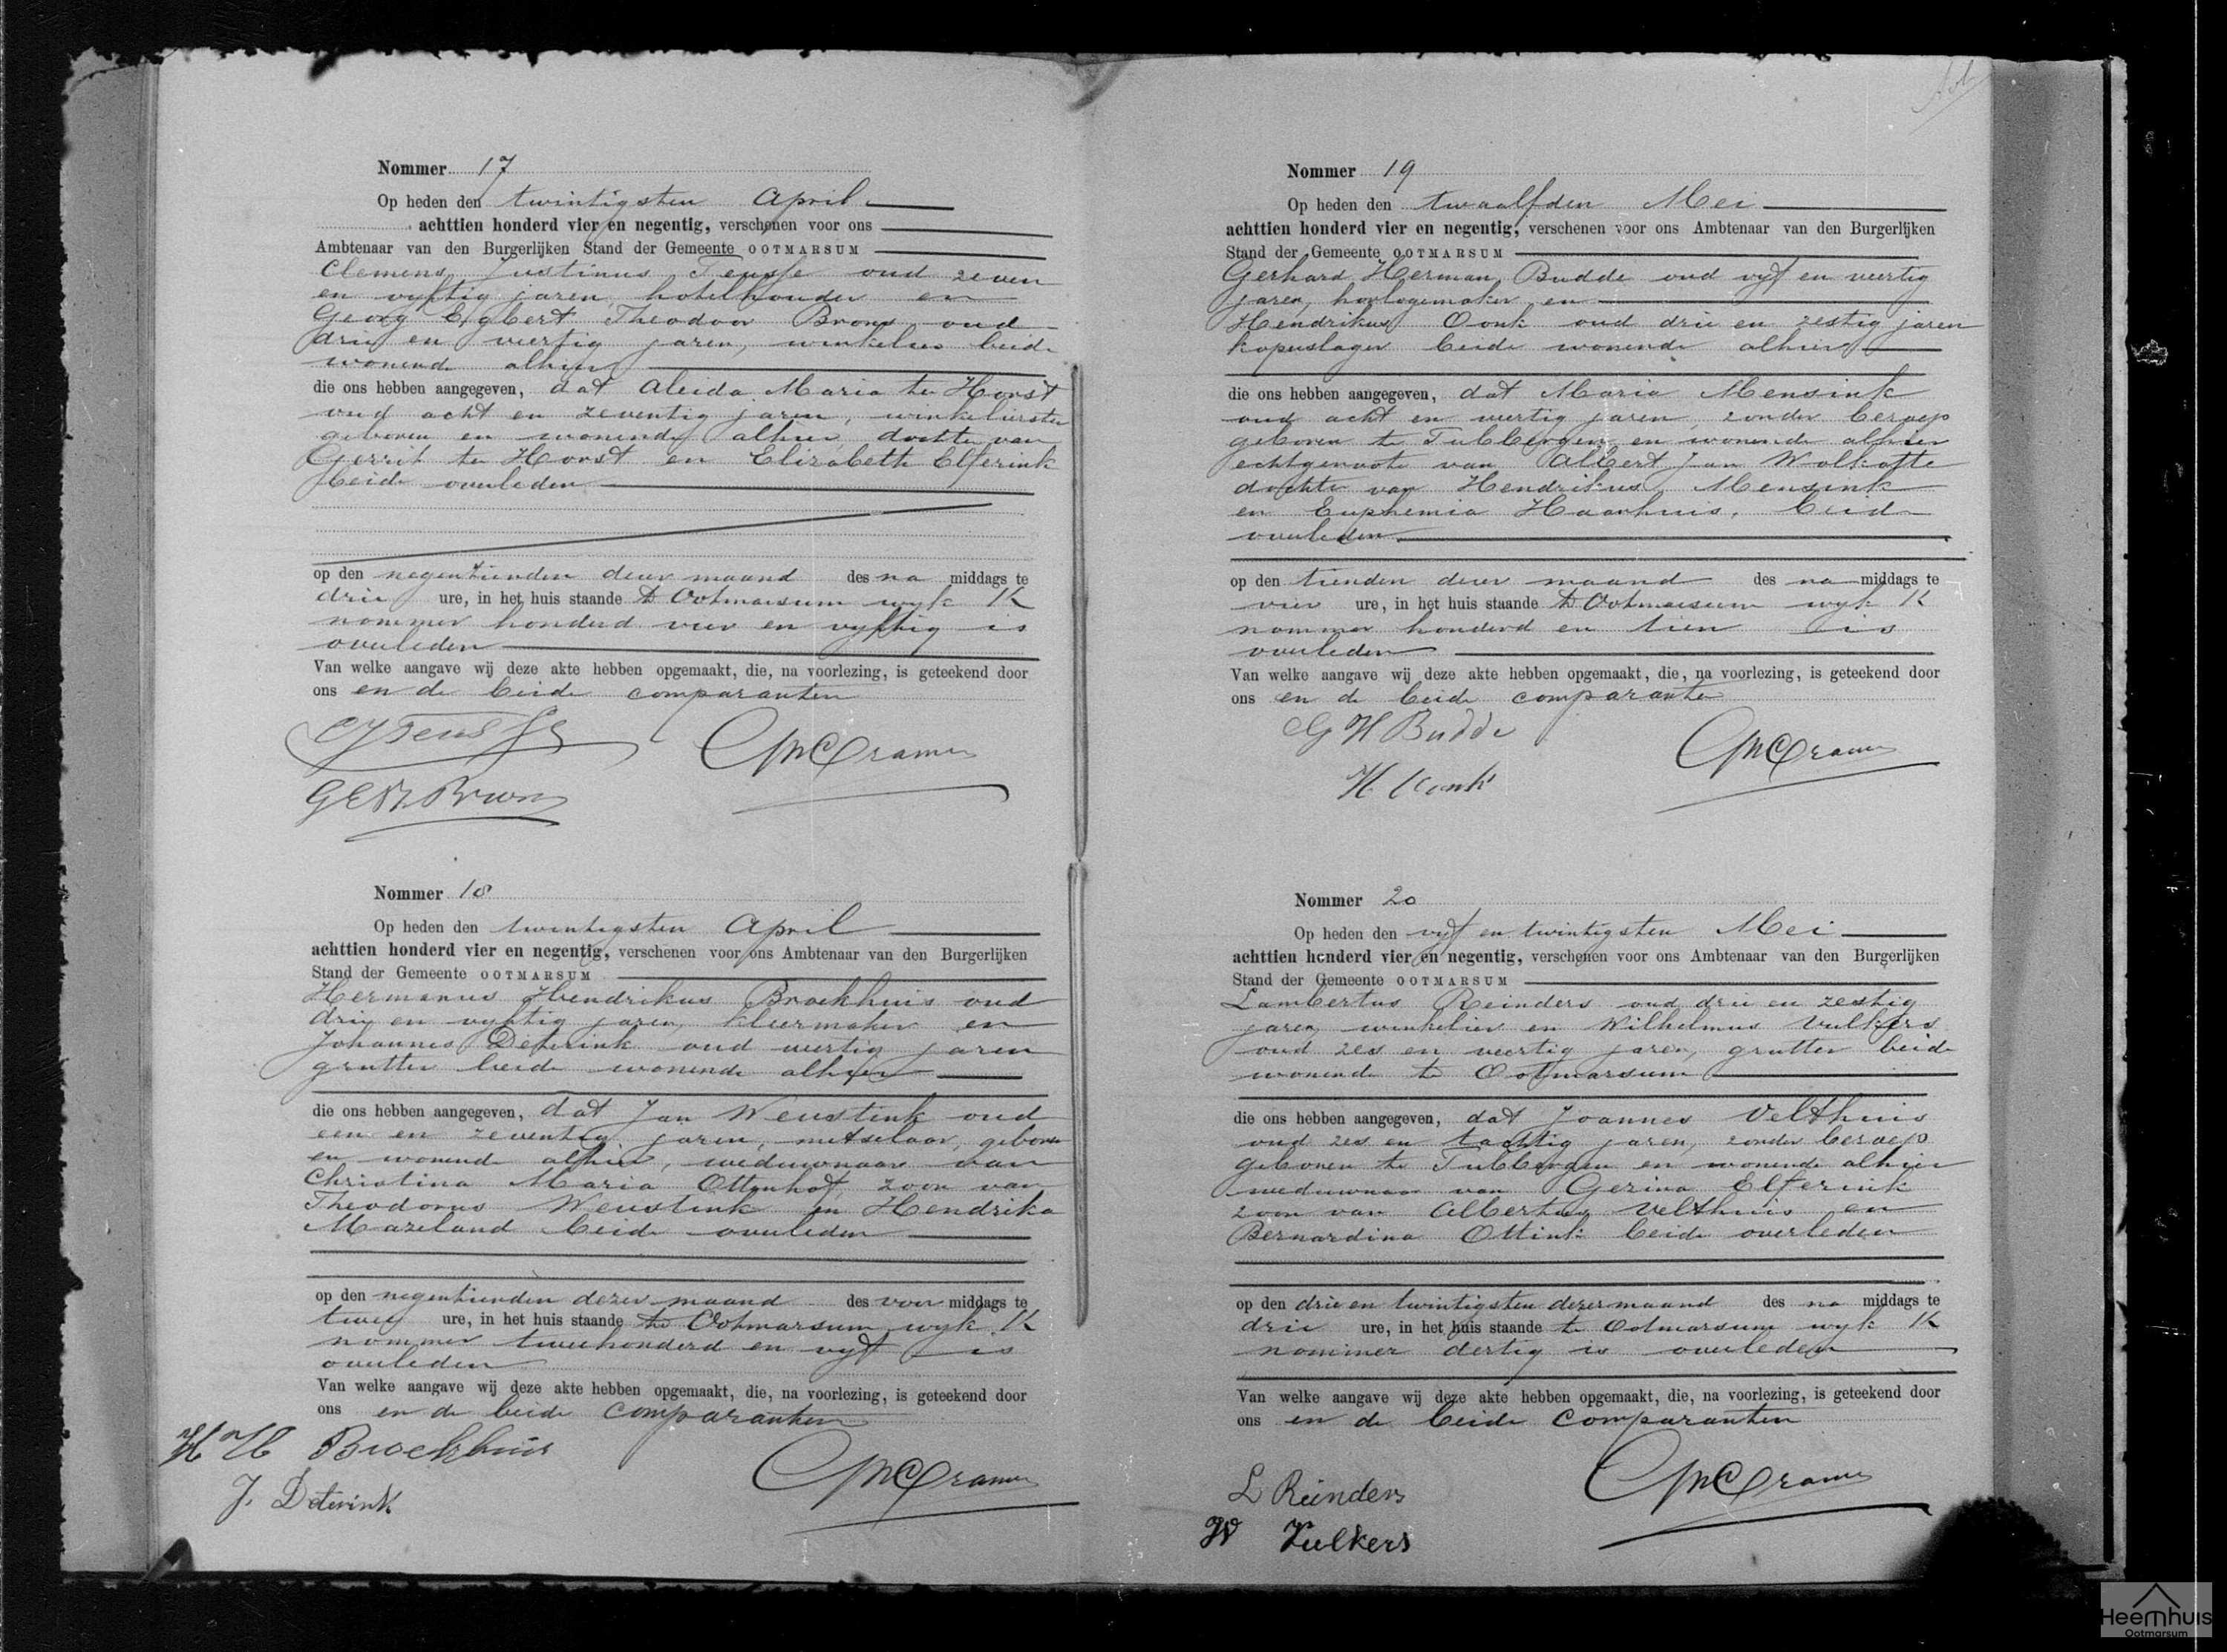 Nommer 17
Op heden den twintigsten April
achttien honderd vier en negentig, verschenen voor ons
Ambtenaar van den Burgerlijken Stand der Gemeente OOTMARSUM
Clemens Justinus Teusse oud zeven
en vyftig jaren, hotelhouder en
Georg Egbert Theodoor Brons oud
drie en veertig jaren, winkelier beide
wonende alhier
die ons hebben aangegeven, dat Aleida Maria ter Horst
oud acht en zeventig jaren, winkelierster
geboren en wonende alhier, dochter van
Gerrit ter Horst en Elizabeth Elferink
beide overleden
op den negentienden dezer maand des na middags te
drie ure, in het huis staande te Ootmarsum wyk K
nommer honderd vier en vyftig is
overleden
Van welke aangave wij deze akte hebben opgemaakt, die, na voorlezing, is geteekend door
ons en de beide comparanten
Cramer
Nommer 18
Op heden den twintigsten April
achttien honderd vier en negentig, verschenen voor ons Ambtenaar van den Burgerlijken
Stand der Gemeente OOTMARSUM
Hermanus Hendrikus Broekhuis oud
drie en vyftig jaren, kleermaker en
Johannes Deterink oud veertig jaren
grutter beide wonende alhier
die ons hebben aangegeven, dat Jan Weustink oud
een en zeventig jaren, metselaar, geboren
en wonende alhier, weduwnaar van
Christina Maria Ottenhof, zoon van
Theodorus Weustink en Hendrika
Mazeland beide overleden
op den negentienden dezer maand des voor middags te
twee ure, in het huis staande te Ootmarsum wyk K
nommer tweehonderd en vyf is
overleden
Van welke aangave wij deze akte hebben opgemaakt, die, na voorlezing, is geteekend door
ons en de beide comparanten
H H Broekhuis
Cramer
J. Deterink
Nommer 19
Op heden den twaalfden Mei
achttien honderd vier en negentig, verschenen voor ons Ambtenaar van den Burgerlijken
Stand der Gemeente OOTMARSUM
Gerhard Herman Budde oud vyf en veertig
jaren, horlogemaker en
Hendrikus Oonk oud drie en zestig jaren
koperslager beide wonende alhier
die ons hebben aangegeven, dat Maria Mensink
oud acht en veertig jaren, zonder beroep
geboren te Tubbergen en wonende alhier
echtgenoote van Albert Jan Wolkotte
dochter van Hendrikus Mensink
en Euphemia Haarhuis, beide
overleden
op den tienden dezer maand des na middags te
vier ure, in het huis staande te Ootmarsum wyk K
nommer honderd en tien is
overleden
Van welke aangave wij deze akte hebben opgemaakt, die, na voorlezing, is geteekend door
ons en de beide comparanten
G H Budde
Cramer
H Oonk
Nommer 20
Op heden den vyf en twintigsten Mei
achttien honderd vier en negentig, verschenen voor ons Ambtenaar van den Burgerlijken
Stand der Gemeente OOTMARSUM
Lambertus Reinders oud drie en zestig
jaren, winkelier en Wilhelmus Vulkers
oud zes en veertig jaren, grutter beide
wonende te Ootmarsum
die ons hebben aangegeven, dat Joannes Velthuis
oud zes en tachtig jaren, zonder beroep
geboren te Tubbergen en wonende alhier
weduwnaar van Gezina Elferink
zoon van Albertus Velthuis en
Bernardina Ottink beide overleden
op den drie en twintigsten dezer maand des na middags te
drie ure, in het huis staande te Ootmarsum wyk K
nommer dertig is overleden
Van welke aangave wij deze akte hebben opgemaakt, die, na voorlezing, is geteekend door
ons en de beide comparanten
L Reinders
Cramer
W Vulkers
Heemhuis
Ootmarsum